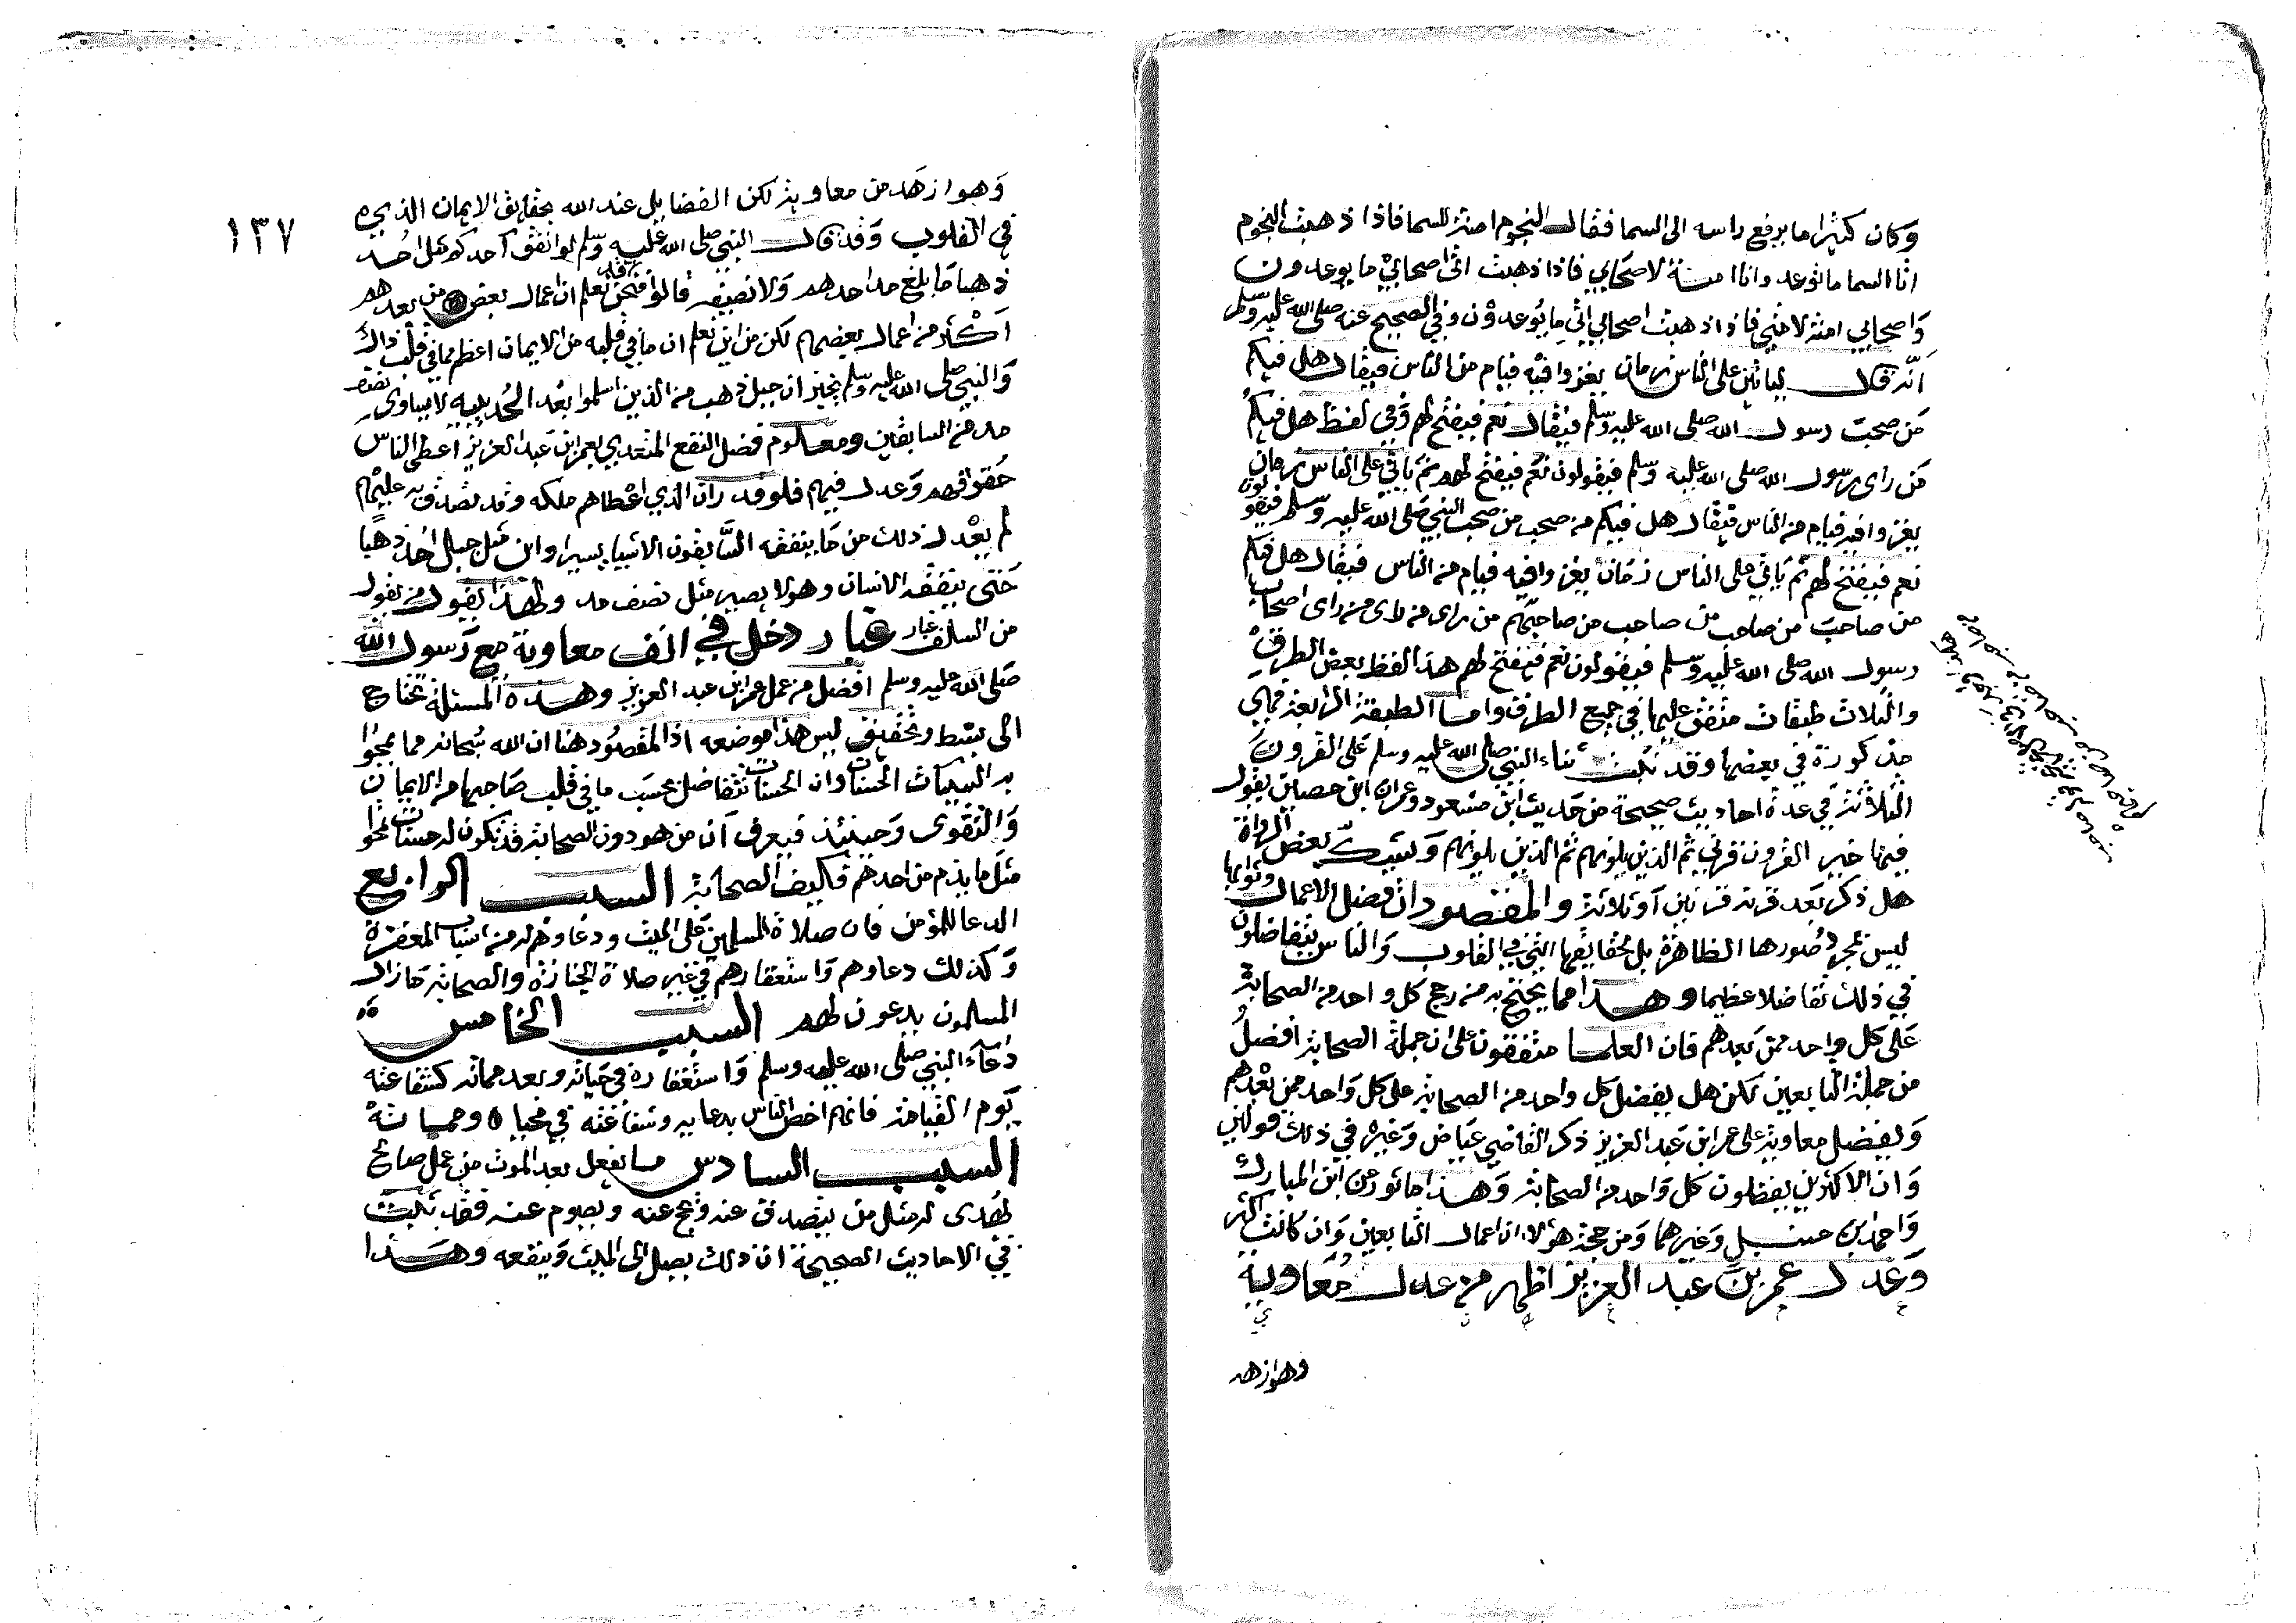 وكان كثيرا ما يرفع راسه الى السما فقال النجوم امنة للسما فاذا ذهبت النجوم
اتا السما ما توعد وانا امنة لاصحابي فاذا ذهبت اتى اصحابي ما يوعدون
واصحابي امنة لامتي فاذا ذهبت اصحابي اتى ما يوعدون وفي الصحيح عنه صلى الله عليه وسلم
انه قال لياتين على الناس زمان يغزوا فيه فيام من الناس فيقال هل فيكم
من صحب رسول الله صلى الله عليه وسلم فيقال نعم فيفتح لهم وفي لفظ هل فيكم
من راى رسول الله صلى الله عليه وسلم فيقولون نعم فيفتح لهم ثم ياتي على الناس زمان
يغزوا فيه فيام من الناس فيقال هل فيكم من صحب من صحب النبي صلى الله عليه وسلم فيقولون
نعم فيفتح لهم ثم ياتي على الناس زمان يغزوا فيه فيام من الناس فيقال هل فيكم
من صاحب من صاحب من صاحب من صاحبهم من راى من راى من راى اصحاب
رسول الله صلى الله عليه وسلم فيقولون نعم فيفتح لهم هذا لفظ بعض الطرق
والثلاث طبقات متفق عليها في جميع الطرق واما الطبقة الرابعة فهي
مذكورة في بعضها وقد ثبت ثناء النبي صلى الله عليه وسلم على القرون
الثلاثة في عدة احاديث صحيحة من حديث ابن مسعود وعمران ابن حصين يقول
فيها خير القرون قرني ثم الذين يلونهم ثم الذين يلونهم ويشك بعض الرواة
هل ذكر بعد قرنه قرنين او ثلاثة والمقصود ان فضل الاعمال وثوابها
ليس بمجرد صورها الظاهرة بل بحقايقها التي في القلوب والناس يتفاضلون
في ذلك تفاضلا عظيما وهذا مما يحتج به من رجح كل واحد من الصحابة
على كل واحد ممن بعدهم فان العلما متفقون على ان جملة الصحابة افضل
من جملة التابعين لكن هل يفضل كل واحد من الصحابة على كل واحد ممن بعدهم
ويفضل معاوية على عمر ابن عبد العزيز ذكر القاضي عياض وغيره في ذلك قولين
وان الاكثرين يفضلون كل واحد من الصحابة وهذا ماثور عن ابن المبارك
واحمد بن حنبل وغيرهما ومن حجة هؤلا ان اعمال التابعين وان كانت اكثر
وعدل عمر بن عبد العزيز اظهر من عدل معاوية
وهو ازهد
١٣٧
وهو ازهد من معاوية لكن الفضايل عند الله بحقايق الايمان الذي
في القلوب وقد قال النبي صلى الله عليه وسلم لو انفق احدكم مثل احد
ذهبا ما بلغ مد احدهم ولا نصيفه قالوا فنحن قد نعلم ان اعمال بعض من بعدهم
اكثر من اعمال بعضهم لكن من اين نعلم ان ما في قلبه من الايمان اعظم مما في قلب ذاك
والنبي صلى الله عليه وسلم يخبر ان جبل ذهب من الذين اسلموا بعد الحديبية لا يساوي نصف
مد من السابقين ومعلوم فضل النفع المتعدي بعمر ابن عبد العزيز اعطى الناس
حقوقهم وعدل فيهم فلو قدر ان الذي اعطاهم ملكه وقد تصدق به عليهم
لم يعدل ذلك من ما ينفقه السابقون الا شيا يسيرا واين مثل جبل احد ذهبا
حتى ينفقه الانسان وهو لا يصير مثل نصف مد ولهذا يقول من يقول
من السلف غبار دخل في انف معاوية مع رسول الله
صلى الله عليه وسلم افضل من عمل عمر ابن عبد العزيز وهذه المسئلة تحتاج
الى بسط وتحقيق ليس هذا موضعه اذ المقصود هنا ان الله سبحانه مما يمحوا
به السييات الحسنات وان الحسنات تتفاضل بحسب ما في قلب صاحبها من الايمان
والتقوى وحينئذ فيعرف ان من هو دون الصحابة قد تكون له حسنات تمحوا
مثل ما يذم من احدهم فكيف الصحابة السبب الرابع
الدعا للمؤمن فان صلاة المسلمين على الميت ودعاوهم له من اسباب المغفرة
وكذلك دعاوهم واستغفارهم في غير صلاة الجنازة والصحابة ما زال
المسلمون يدعون لهم السبب الخامس
دعاء النبي صلى الله عليه وسلم واستغفاره في حياته وبعد مماته كشفاعته
يوم القيامة فانهم اخص الناس بدعايه وشفاعته في محياه ومماته
السبب السادس ما يفعل بعد الموت من عمل صالح
يهدى له مثل من يتصدق عنه ويحج عنه ويصوم عنه فقد ثبت
في الاحاديث الصحيحة ان ذلك يصل الى الميت وينفعه وهذا